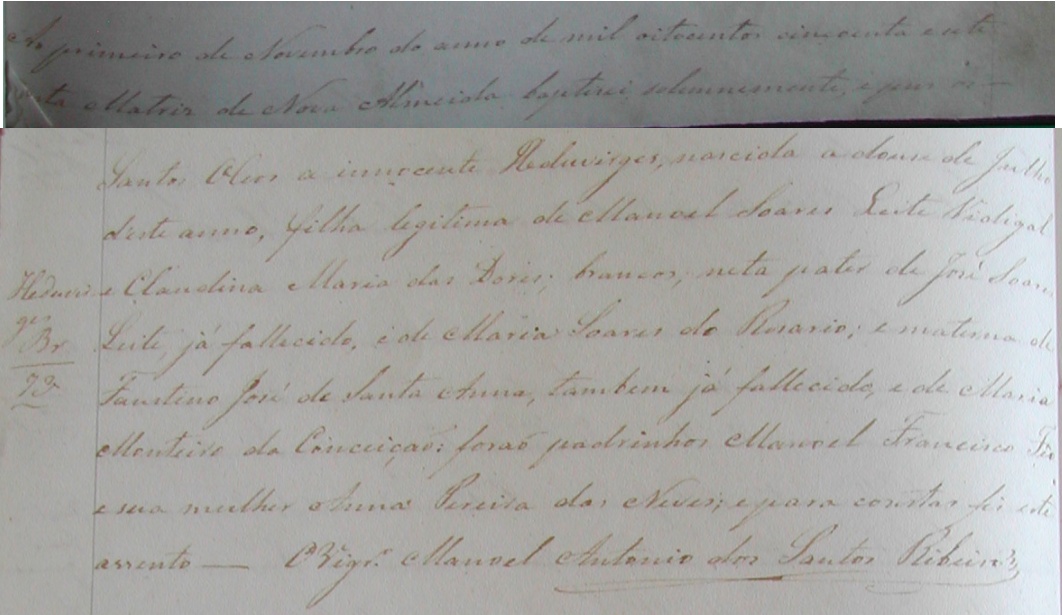 Ao primeiro de Novembro do anno de mil oitocentos cincoenta e sete
ta Matriz de Nova Almeida baptisei solemnemente, e puz os
Santos Oleos a innocente Heduviges, nascida a douse de Julho
d'este anno, filha legitima de Manoel Soares Leite Vidigal
e Claudina Maria das Dores, brancos, neta pater de José Soares
Leite, já fallecido, e de Maria Soares do Rosario; e materna de
Faustino José de Santa Anna, tambem já fallecido, e de Maria
Monteiro da Conceição: forão padrinhos Manoel Francisco
e sua mulher Anna Pereira das Neves; e para constar fiz este
assento — O Vigr.º Manoel Antonio dos Santos Ribeiro
Heduvi
ges
Br
73